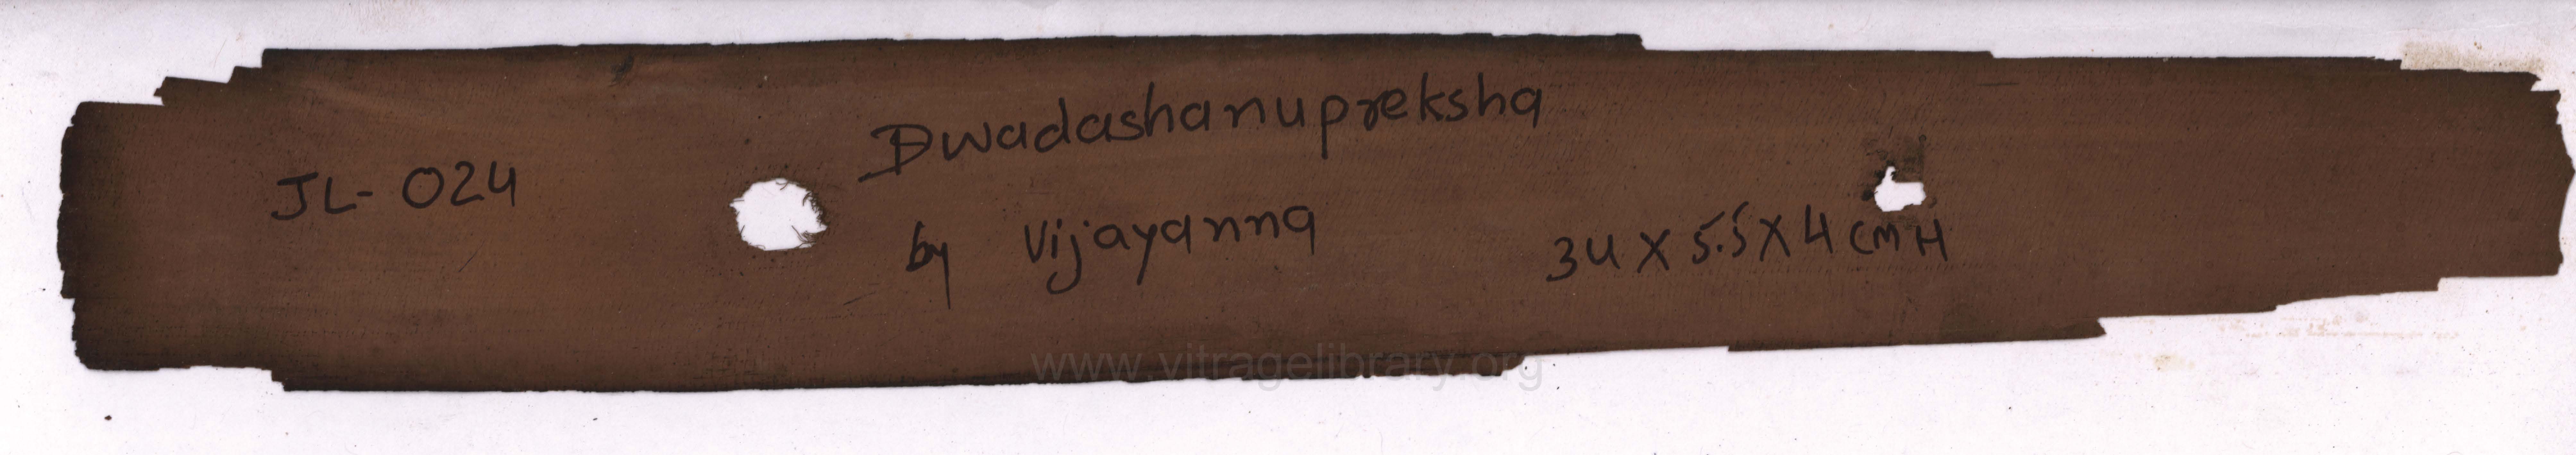 JL- 024
Dwadashanupreksha
by Vijayanna
34 X 5.5 X 4 CMH
www.vitragelibrary.org